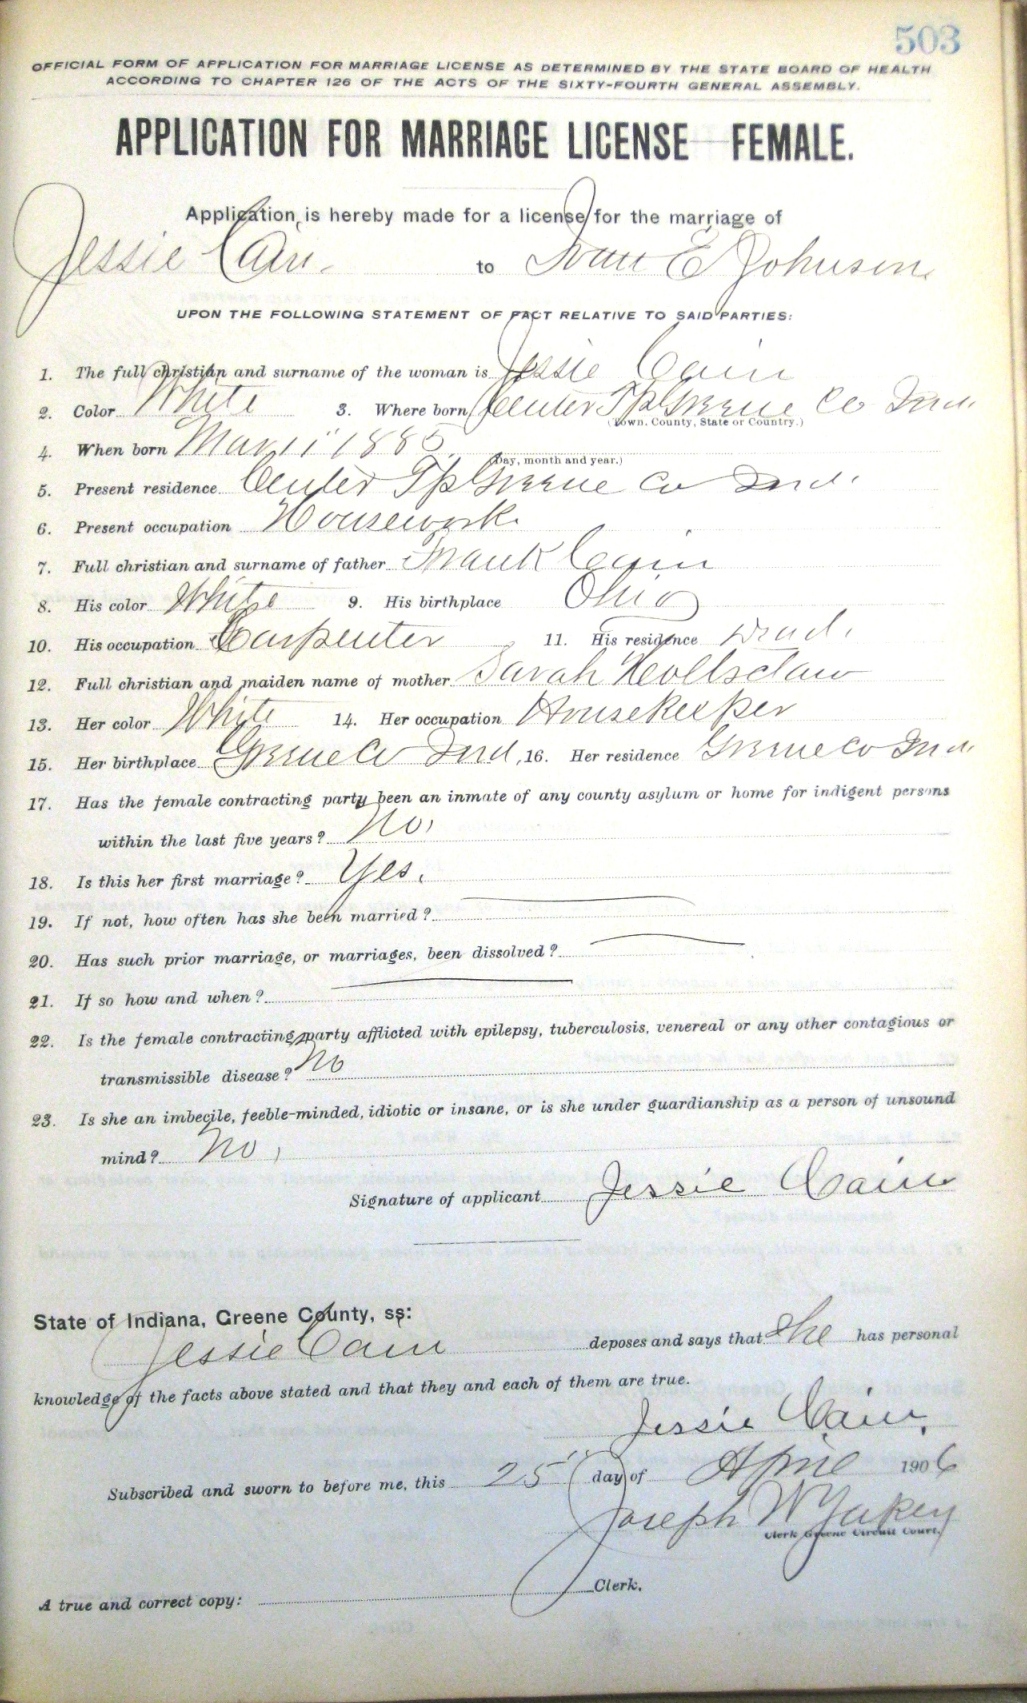 503
OFFICIAL FORM OF APPLICATION FOR MARRIAGE LICENSE AS DETERMINED BY THE STATE BOARD OF HEALTH
ACCORDING TO CHAPTER 126 OF THE ACTS OF THE SIXTY-FOURTH GENERAL ASSEMBLY.
APPLICATION FOR MARRIAGE LICENSE FEMALE.
Application is hereby made for a license for the marriage of
Jessie Cain. to Ivan E Johnson
UPON THE FOLLOWING STATEMENT OF FACT RELATIVE TO SAID PARTIES:
1. The full christian and surname of the woman is Jessie Cain
2. Color White 3. Where born Center Tp Greene Co Ind.
(Town, County, State or Country.)
4. When born Mar 11 188
(Day, month and year.)
5. Present residence Center Tp Greene Co Ind.
6. Present occupation Housework.
7. Full christian and surname of father Frank Cain
8. His color White 9. His birthplace Ohio
10. His occupation Carpenter 11. His residence Ind.
12. Full christian and maiden name of mother Sarah Hollsclaw
13. Her color White 14. Her occupation Housekeeper
15. Her birthplace Greene Co Ind, 16. Her residence Greene Co Ind.
17. Has the female contracting party been an inmate of any county asylum or home for indigent persons
within the last five years? No,
18. Is this her first marriage? Yes.
19. If not, how often has she been married?
20. Has such prior marriage, or marriages, been dissolved?
21. If so how and when?
22. Is the female contracting party afflicted with epilepsy, tuberculosis, venereal or any other contagious or
transmissible disease? No
23. Is she an imbecile, feeble-minded, idiotic or insane, or is she under guardianship as a person of unsound
mind? No,
Signature of applicant Jessie Cain
State of Indiana, Greene County, ss:
Jessie Cain deposes and says that She has personal
knowledge of the facts above stated and that they and each of them are true.
Jessie Cain.
Subscribed and sworn to before me, this 25" day of April 1906
Joseph W Yakey
Clerk Greene Circuit Court.
A true and correct copy: Clerk.